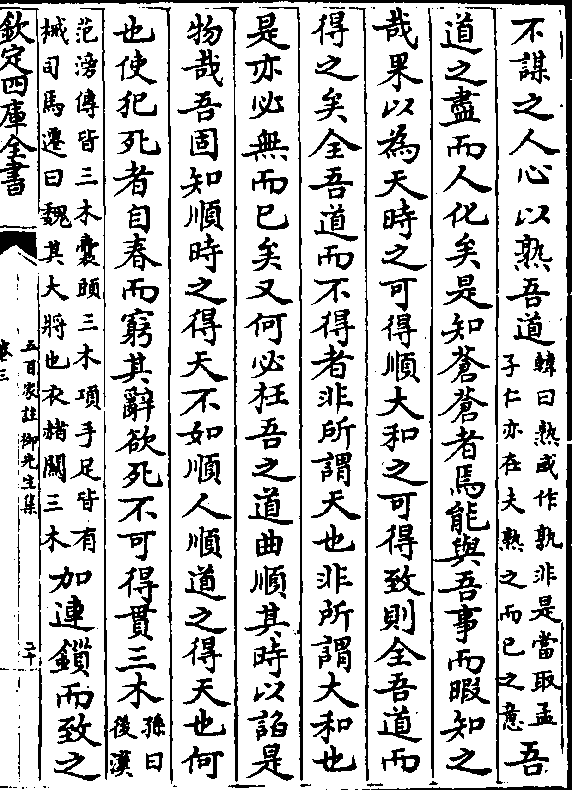 不謀之人心以熟吾道韓曰熟或作孰非是當取孟子仁亦在夫熟之而已之意吾
道之盡而人化矣是知蒼蒼者焉能與吾事而暇知之
哉果以為天時之可得順大和之可得致則全吾道而
得之矣全吾道而不得者非所謂天也非所謂大和也
是亦必無而已矣又何必枉吾之道曲順其時以諂是
物哉吾固知順時之得天不如順人順道之得天也何
也使犯死者自春而窮其辭欲死不可得貫三木孫曰後漢
范滂傳皆三木囊頭三木項手足皆有械司馬遷曰魏其大將也衣赭關三木加連鎖而致之
欽定四庫全書
五百家註柳先生集
卷三
二十